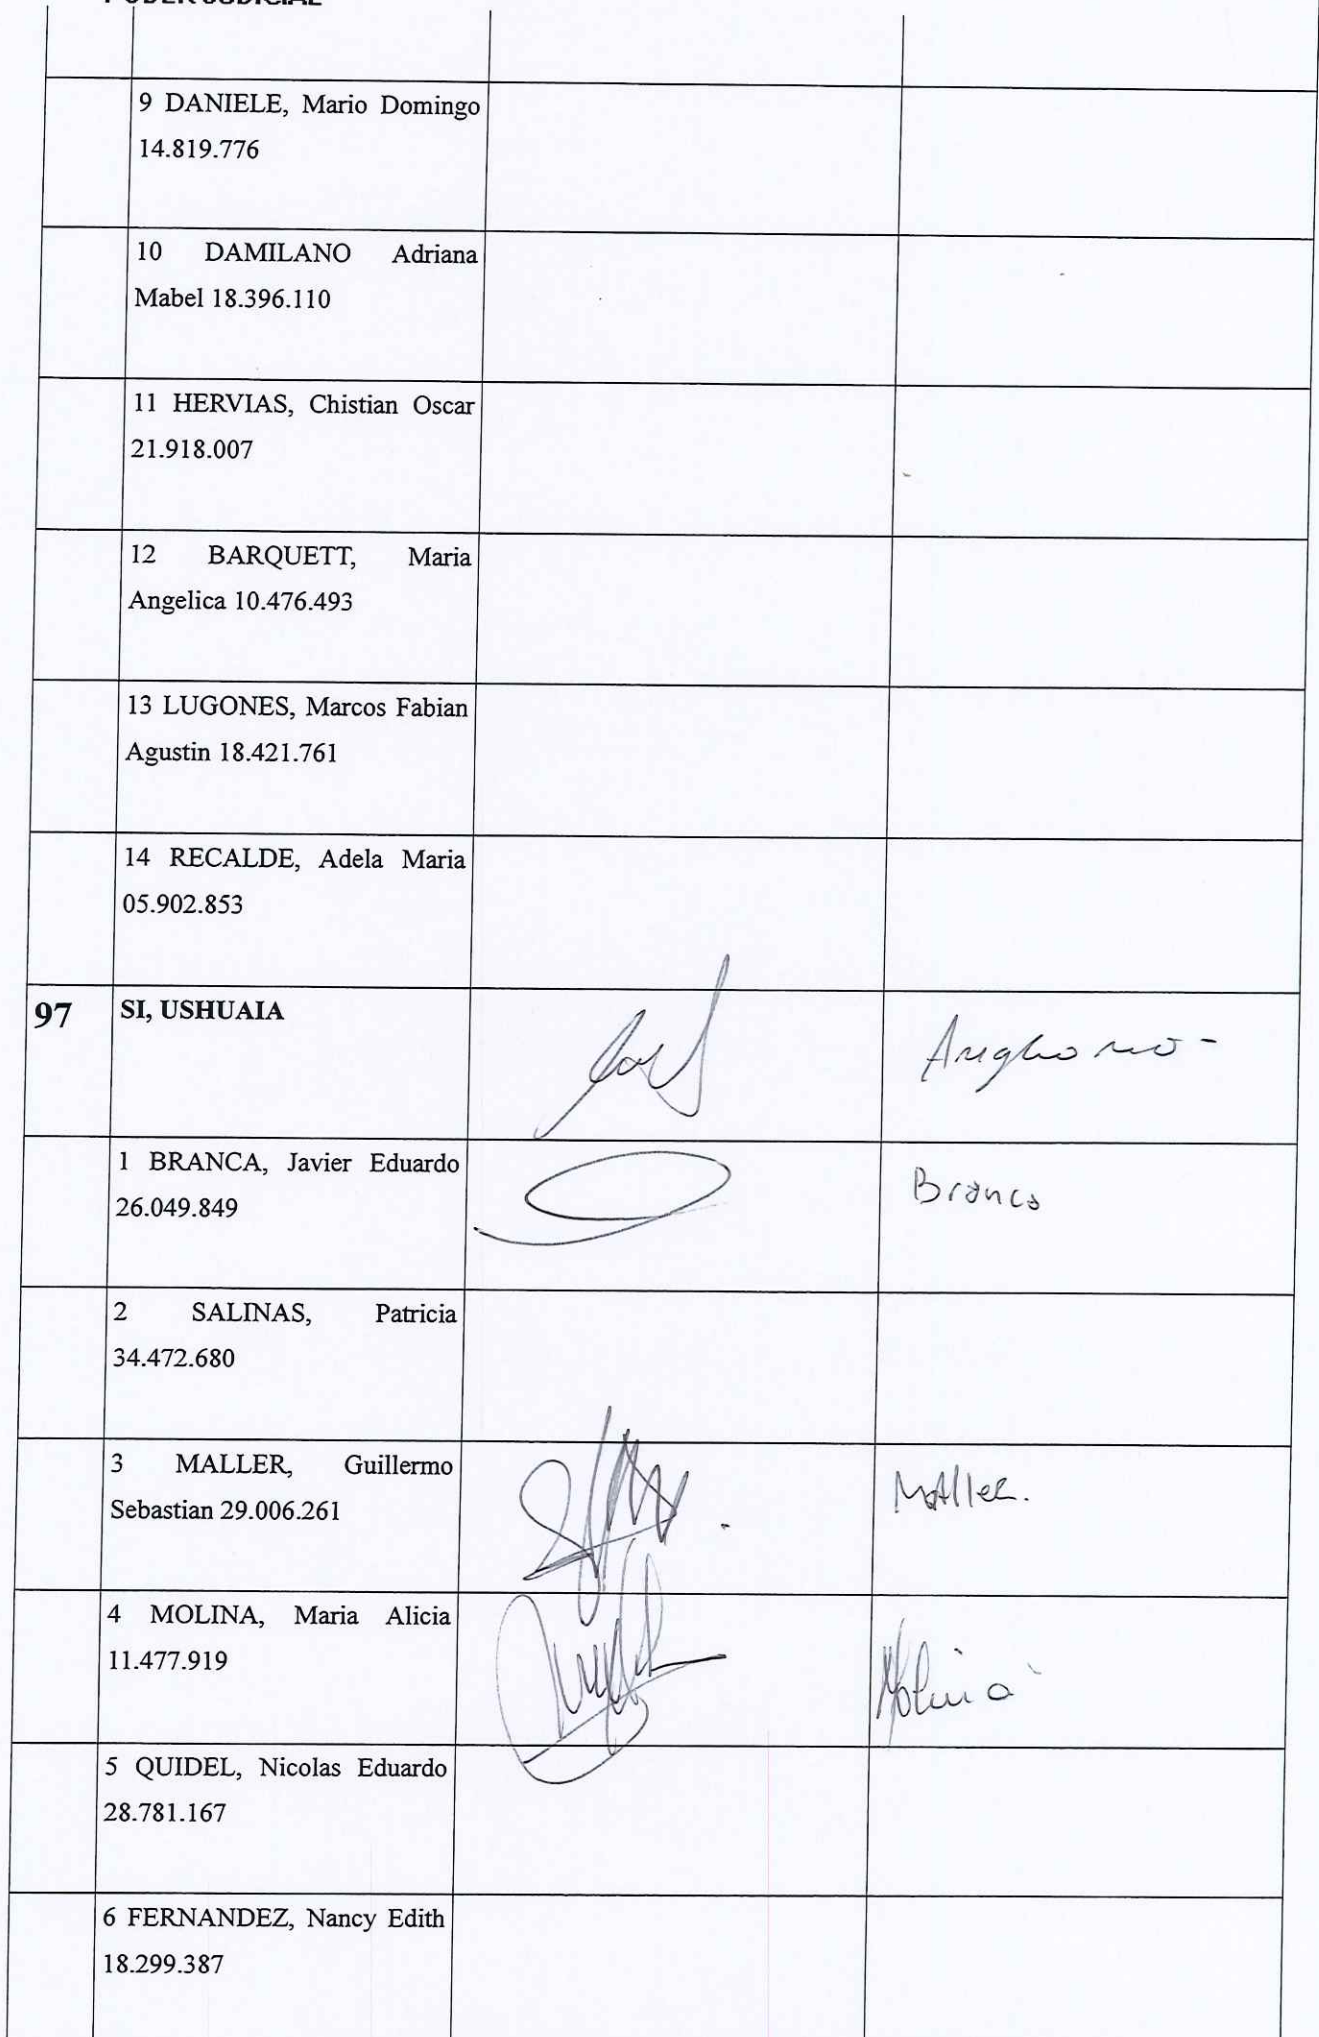 PODER JUDICIAL
9 DANIELE, Mario Domingo
14.819.776
10 DAMILANO Adriana
Mabel 18.396.110
11 HERVIAS, Chistian Oscar
21.918.007
12 BARQUETT, Maria
Angelica 10.476.493
13 LUGONES, Marcos Fabian
Agustin 18.421.761
14 RECALDE, Adela Maria
05.902.853
97 SI, USHUAIA
1 BRANCA, Javier Eduardo
26.049.849
Branca
2 SALINAS, Patricia
34.472.680
3 MALLER, Guillermo
Sebastian 29.006.261
MAller.
4 MOLINA, Maria Alicia
11.477.919
Molina
5 QUIDEL, Nicolas Eduardo
28.781.167
6 FERNANDEZ, Nancy Edith
18.299.387